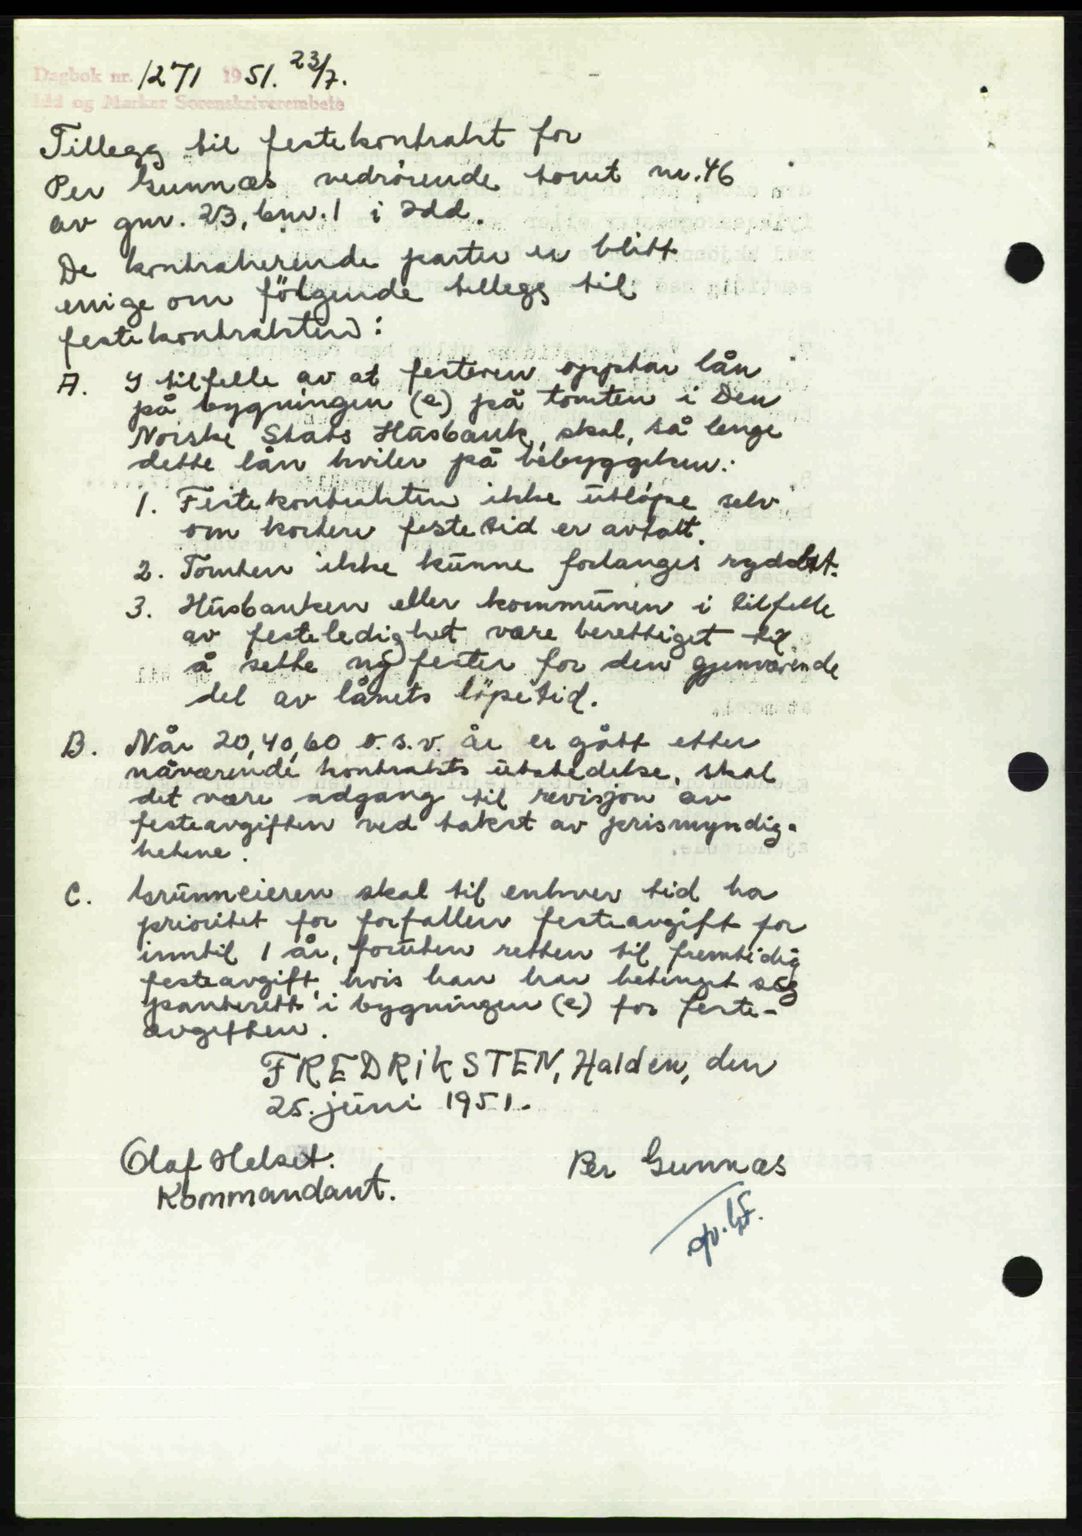 Dagbok nr. 1271 1951. 23/7.
Idd og Marker Sorenskriverembete
Tillegg til festekontrakt for
Per Gunnæs vedrørende tomt nr. 46
av gnr. 23, bnr. 1 i Idd.
De kontraherende parter er blitt
enige om følgende tillegg til
festekontrakten:
A. I tilfelle av at festeren opptar lån
på bygningen (e) på tomten i Den
Norske Stats Husbank, skal, så lenge
dette lån hviler på bebyggelsen:
1. Festekontrakten ikke utløpe selv
om kortere festetid er avtalt.
2. Tomten ikke kunne forlanges ryddet.
3. Husbanken eller kommunen i tilfelle
av festeledighet være berettiget til
å sette ny fester for den gjenværende
del av lånets löpetid.
B. Når 20, 40, 60 o.s.v. år er gått etter
nåværende kontrakts utstedelse, skal
det være adgang til revisjon av
festeavgiften ved takst av prismyndig-
hetene.
C. Grunneieren skal til enhver tid ha
prioritet for forfallen festeavgift for
inntil 1 år, foruten retten til fremtidig
festeavgift, hvis han har betinget seg
panterett i bygningen (e) for feste-
avgiften.
FREDRIKSTEN, Halden, den
25. juni 1951.
Olaf Helset. Per Gunnæs
Kommandant.